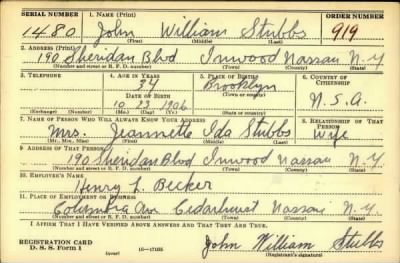 SERIAL NUMBER 1. NAME (Print) ORDER NUMBER
1480 John William Stubbs 919
(First) (Middle) (Last)
2. ADDRESS (Print)
190 Sheridan Blvd Inwood Nassau N.Y
(Number and street or R. F. D. number) (Town) (County) (State)
3. TELEPHONE 4. AGE IN YEARS 5. PLACE OF BIRTH 6. COUNTRY OF CITIZENSHIP
34 Brooklyn
DATE OF BIRTH (Town or county)
10 23 1906 U.S.A.
(Exchange) (Number) (Mo.) (Day) (Yr.) (State or country)
7. NAME OF PERSON WHO WILL ALWAYS KNOW YOUR ADDRESS 8. RELATIONSHIP OF THAT PERSON
Mrs. Jeannette Ida Stubbs Wife
(Mr., Mrs., Miss) (First) (Middle) (Last)
9. ADDRESS OF THAT PERSON
190 Sheridan Blvd Inwood Nassau N.Y
(Number and street or R. F. D. number) (Town) (County) (State)
10. EMPLOYER'S NAME
Henry L. Becker
11. PLACE OF EMPLOYMENT OR BUSINESS
Columbia Ave Cedarhurst Nassau N.Y.
(Number and street or R. F. D. number) (Town) (County) (State)
I AFFIRM THAT I HAVE VERIFIED ABOVE ANSWERS AND THAT THEY ARE TRUE.
REGISTRATION CARD
D. S. S. Form 1 (over) 16—17105 John William Stubbs
(Registrant's signature)